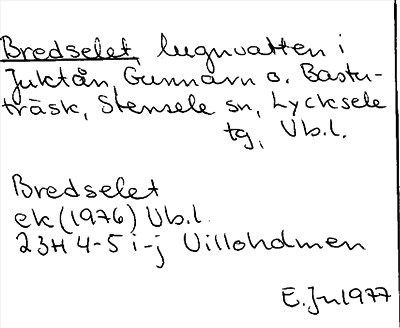 Bredselet, lugnvatten i
Juktån, Gunnarn o. Bastu-
träsk, Stensele sn, Lycksele
tg, Vb.l.
Bredselet
ek (1976) Vb.l.
23H 4-5 i-j Villoholmen
E.Jn 1977